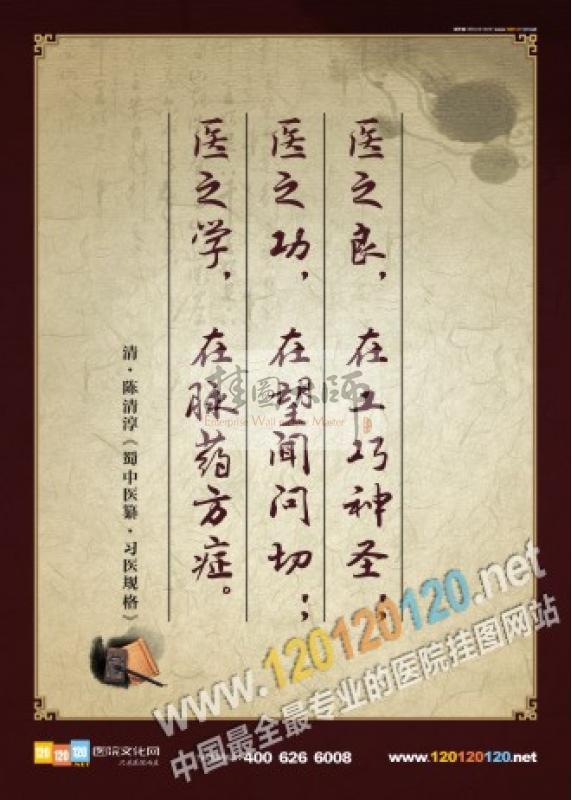 医之良，在工巧神圣；
医之功，在望闻问切；
医之学，在脉药方症。
清·陈清淳《蜀中医纂·习医规格》
挂图大师
Enterprise Wall Master
www.120120120.net
中国最全最专业的医院挂图网站
120 120 120 .NET 医院文化网
400 626 6008
www.120120120.net